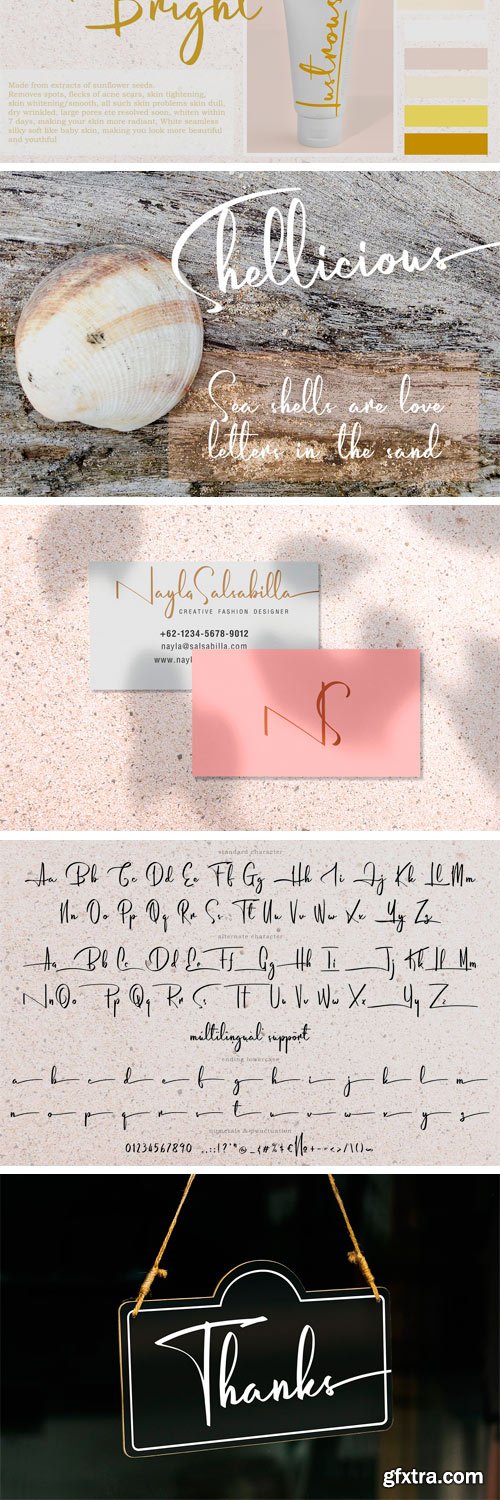 Bright
Lustrous
Made from extracts of sunflower seeds.
Removes spots, flecks of acne sears, skin tightening,
skin whitening/smooth, all such skin problems skin dull,
dry wrinkled, large pores etc resolved soon, whiten within
7 days, making your skin more radiant, White seamless
silky soft like baby skin, making you look more beautiful
and youthful
Shellicious
Sea shells are love
letters in the sand
Nayla Salsabilla
CREATIVE FASHION DESIGNER
+62-1234-5678-9012
nayla@salsabilla.com
www.nayl
NS
standard character
Aa Bb Cc Dd Ee Ff Gg Hh Ii Jj Kk Ll Mm
Nn Oo Pp Qq Rr Ss Tt Uu Vv Ww Xx Yy Zz
alternate character
Aa Bb Cc Dd Ee Ff Gg Hh Ii Jj Kk Ll Mm
Nn Oo Pp Qq Rr Ss Tt Uu Vv Ww Xx Yy Zz
multilingual support
ending lowercase
a b c d e f g h i j k l m
n o p q r s t u v w x y z
numerals & punctuation
01234567890
Thanks
gfxtra.com